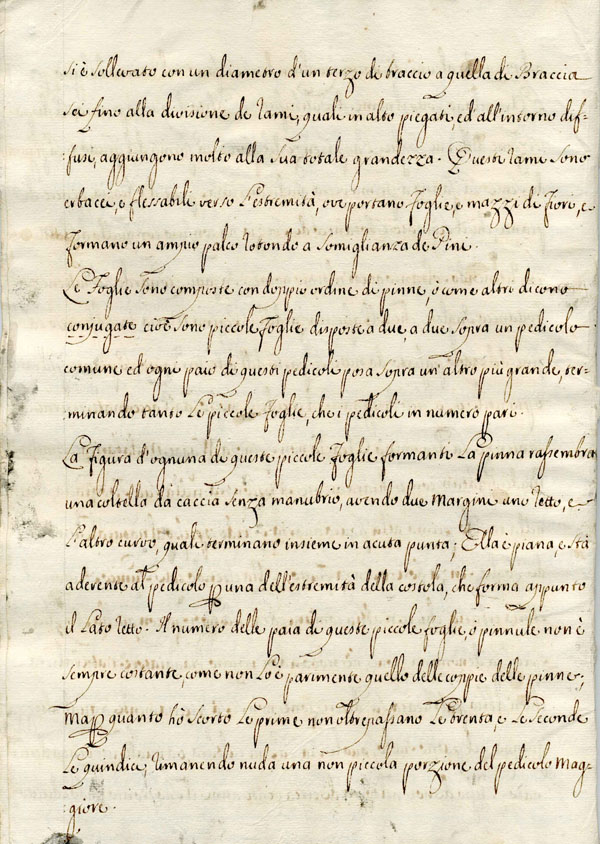 si è sollevato con un diametro d'un terzo di braccio a quella di Braccia
sei fino alla divisione de rami, quali in alto piegati, ed all'intorno dif-
:fusi, aggiungono molto alla sua totale grandezza. Questi rami sono
erbacei, e flessabili verso l'estremità, ove portano foglie, e mazzi di Fiori, e
formano un ampio palco rotondo a somiglianza de Pine.
Le Foglie sono composte con doppio ordine di pinne, ò come altri dicono
conjugate cioè sono piccole foglie disposte a due, a due sopra un pedicolo
comune ed ogni paio di questi pedicoli posa sopra un'altro più grande, ter-
minando tanto le piccole foglie, che i pedicoli in numero pari.
La Figura d'ognuna di queste piccole foglie formanti la pinna rassembra
una coltella da caccia senza manubrio, avendo due Margine uno retto, e
l'altro curvo, quali terminano insieme in acuta punta; Ella è piana, e stà
aderente al pedicolo p una dell'estremità della costola, che forma appunto
il lato retto. Il numero delle paia di queste piccole foglie, o pinnule non è
sempre costante, come non lo è parimente quello delle coppie delle pinne;
Ma p quanto hò scorto le prime non oltrepassano le trenta, e le seconde
le quindici, rimanendo nuda una non piccola porzione del pedicolo Mag-
:giore.